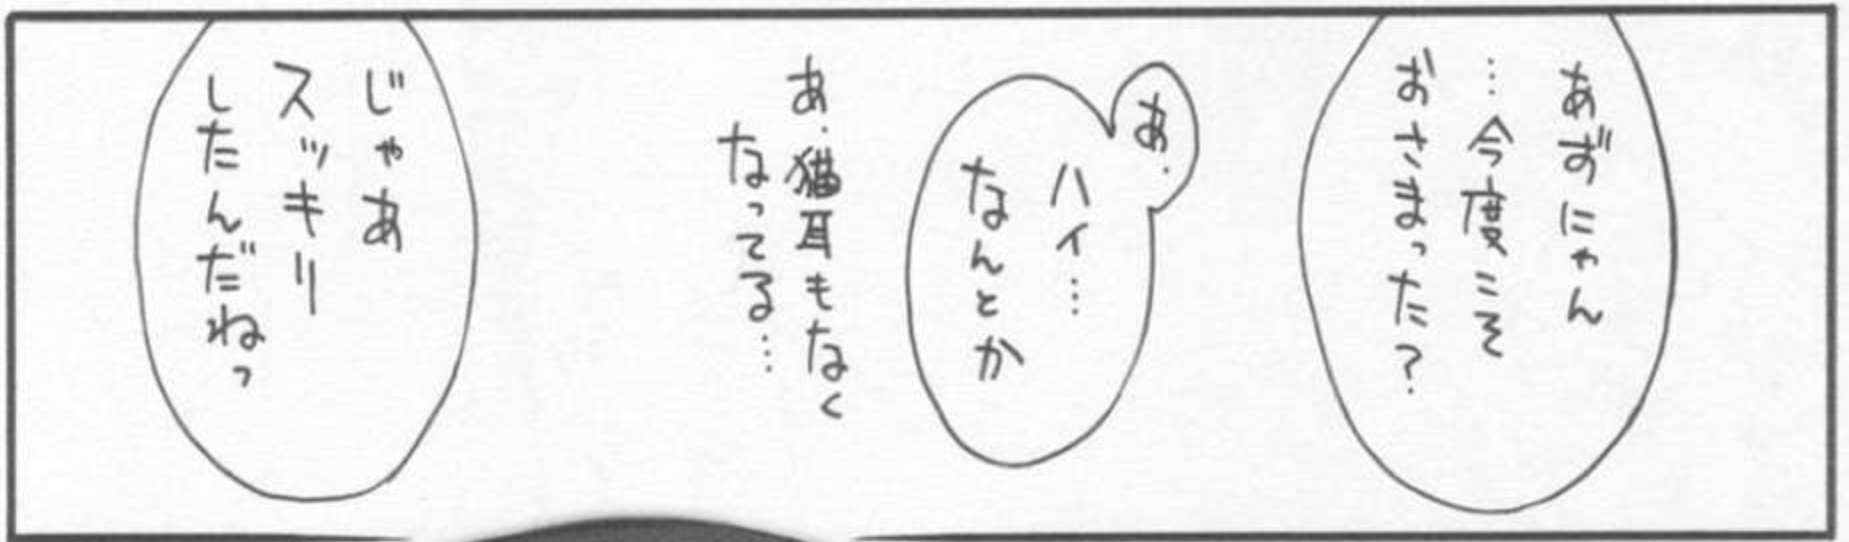 あずにゃん
…今度こそ
おさまった?
あ.
ハイ…
なんとか
あ.猫耳もなく
なってる…
じゃあ
スッキリ
したんだねっ